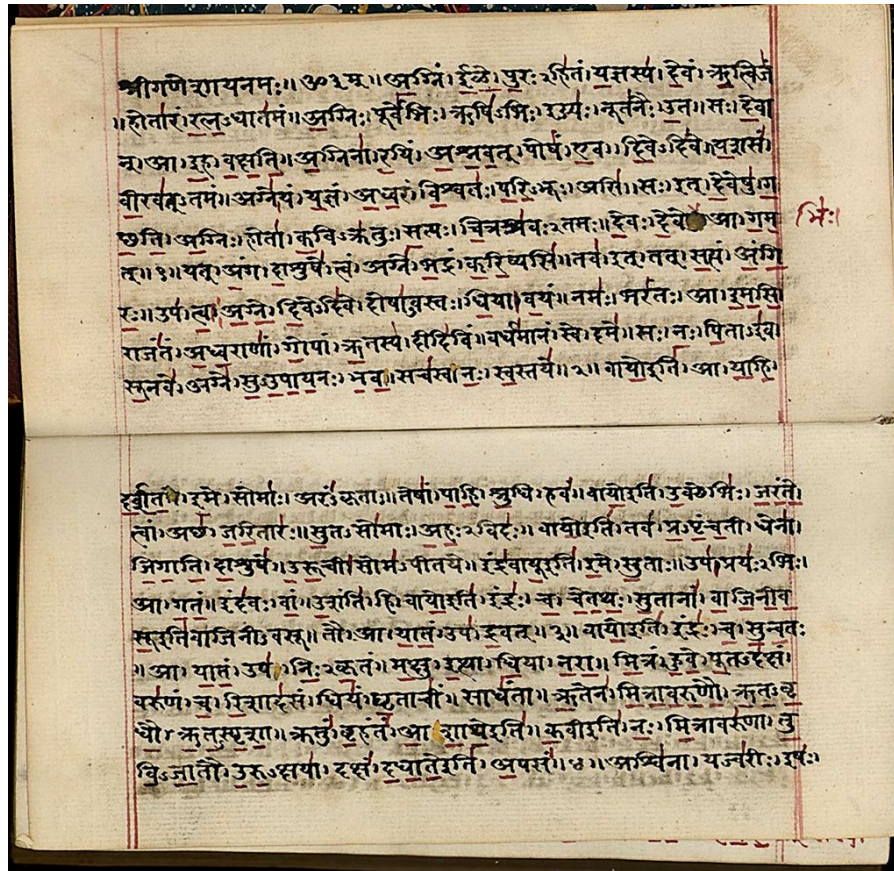 श्रीगणेशायनमः॥ ॐ३म्॥ अग्निं। ईळे। पुरःऽहितं। यज्ञस्य। देवं। ऋत्विजं
॥होतारं। रत्नऽधातमं॥ अग्निः। पूर्वेभिः। ऋषिऽभिः। ईड्यः। नूतनैः। उत॥ सः। देवा
न्। आ। इह। वक्षति॥ अग्निना। रयिं। अश्नवत्। पोषं। एव। दिवेऽदिवे॥ यशसं।
वीरवत्ऽतमं॥ अग्ने। यं। यज्ञं। अध्वरं। विश्वतः। परिऽभूः। असि॥ सः। इत्। देवेषु। ग
छति। अग्निः। होता। कविऽक्रतुः। सत्यः। चित्रश्रवःऽतमः॥ देवः। देवे आ। गम
भिः।
त्॥१॥ यत्। अंग। दाशुषे। त्वं। अग्ने। भद्रं। करिष्यसि॥ तव। इत्। तत्। सत्यं। अंगि
रः॥ उप। त्वा। अग्ने। दिवेऽदिवे। दोषाऽवस्तः। धिया। वयं॥ नमः। भरंतः। आ। इमसि॥
राजंतं। अध्वराणां। गोपां। ऋतस्य। दीदिविं॥ वर्धमानं। स्वे। दमे॥ सः। नः। पिताऽइव।
सूनवे। अग्ने। सुऽउपायनः। भव॥ सचस्व। नः। स्वस्तये॥२॥ वायोइति। आ। याहि।
दर्शत। इमे। सोमाः। अरंऽकृताः॥ तेषां। पाहि। श्रुधि। हवं॥ वायोइति। उक्थेभिः। जरंते।
त्वां। अछ। जरितारः॥ सुतऽसोमाः। अहःऽविदः॥ वायोइति। तव। प्रऽपृंचती। धेना।
जिगाति। दाशुषे॥ उरूची। सोमऽपीतये॥ इंद्रवायूइति। इमे। सुताः॥ उप। प्रयःऽभिः।
आ। गतं॥ इंदवः। वां। उशंति। हि। वायोइति। इंद्रः। च। चेतथः। सुतानां। वाजिनीव
सूइतिवाजिनीऽवसू॥ तौ। आ। यातं। उप। द्रवत्॥३॥ वायोइति। इंद्रः। च। सुन्वतः
॥आ। यातं। उप। निःऽकृतं॥ मक्षु। इत्था। धिया। नरा॥ मित्रं। हुवे। पूतऽदक्षं।
वरुणं। च। रिशादसं। धियं। घृताचीं। साधंता॥ ऋतेन। मित्रावरुणौ। ऋतऽवृ
धौ। ऋतऽस्पृशा॥ क्रतुं। बृहंतं। आशाथेइति॥ कवीइति। नः। मित्रावरुणा। तु
विऽजातौ। उरुऽक्षया। दक्षं। दधातेइति। अपसं॥४॥ अश्विना। यज्वरीः। इषः।